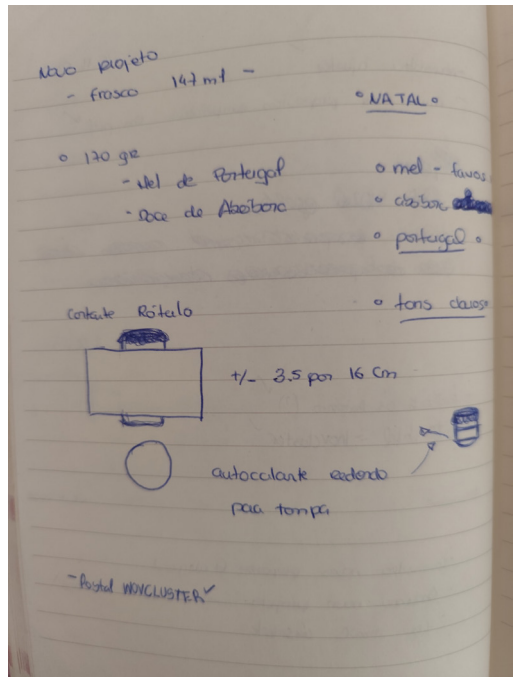 Novo projeto
- frasco 147 ml -
° NATAL °
° 170 gr
- Mel de Portugal
- Doce de Abóbora
° mel - favos
° abóbora
° portugal °
° tons claros
Rótulo
+/- 3.5 por 16 cm
autocolante redondo
para tampa
- Postal WOVCLUSTER ✓